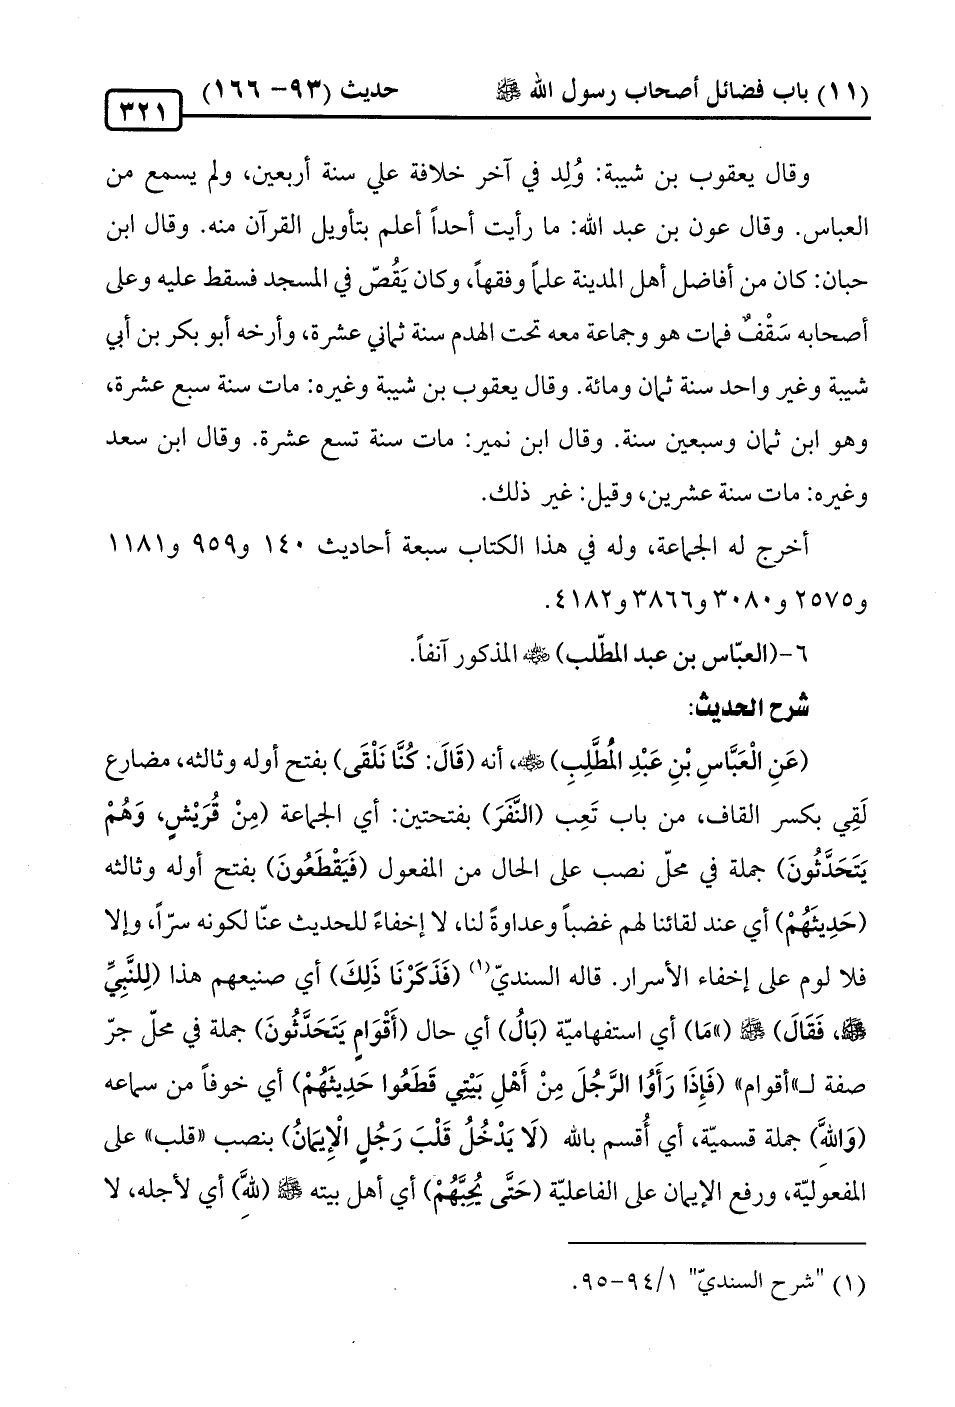 (١١) باب فضائل أصحاب رسول الله ﷺ حديث (٩٣- ١٦٦)
٣٢١
وقال يعقوب بن شيبة: وُلِد في آخر خلافة علي سنة أربعين، ولم يسمع من
العباس. وقال عون بن عبد الله: ما رأيت أحداً أعلم بتأويل القرآن منه. وقال ابن
حبان: كان من أفاضل أهل المدينة علماً وفقهاً، وكان يَقُصّ في المسجد فسقط عليه وعلى
أصحابه سَقْفٌ فمات هو وجماعة معه تحت الهدم سنة ثماني عشرة، وأرخه أبو بكر بن أبي
شيبة وغير واحد سنة ثمان ومائة. وقال يعقوب بن شيبة وغيره: مات سنة سبع عشرة،
وهو ابن ثمان وسبعين سنة. وقال ابن نمير: مات سنة تسع عشرة. وقال ابن سعد
وغيره: مات سنة عشرين، وقيل: غير ذلك.
أخرج له الجماعة، وله في هذا الكتاب سبعة أحاديث ١٤٠ و٩٥٩ و١١٨١
و٢٥٧٥ و٣٠٨٠ و٣٨٦٦ و٤١٨٢.
٦-(العبّاس بن عبد المطّلب) رضي الله عنه المذكور آنفاً.
شرح الحديث:
(عَنِ الْعَبَّاسِ بْنِ عَبْدِ الْمُطَّلِبِ) رضي الله عنه، أنه (قَالَ: كُنَّا نَلْقَى) بفتح أوله وثالثه، مضارع
لَقِي بكسر القاف، من باب تَعِب (النَّفَرَ) بفتحتين: أي الجماعة (مِنْ قُرَيْشٍ، وَهُمْ
يَتَحَدَّثُونَ) جملة في محلّ نصب على الحال من المفعول (فَيَقْطَعُونَ) بفتح أوله وثالثه
(حَدِيثَهُمْ) أي عند لقائنا لهم غضباً وعداوةً لنا، لا إخفاءً للحديث عنّا لكونه سرّاً، وإلا
فلا لوم على إخفاء الأسرار. قاله السنديّ(١) (فَذَكَرْنَا ذَلِكَ) أي صنيعهم هذا (لِلنَّبِيِّ
ﷺ، فَقَالَ) ﷺ («مَا) أي استفهاميّة (بَالُ) أي حال (أَقْوَامٍ يَتَحَدَّثُونَ) جملة في محلّ جرّ
صفة لـ»أقوام» (فَإِذَا رَأَوُا الرَّجُلَ مِنْ أَهْلِ بَيْتِي قَطَعُوا حَدِيثَهُمْ) أي خوفاً من سماعه
(وَاللهِ) جملة قسميّة، أي أُقسم بالله (لَا يَدْخُلُ قَلْبَ رَجُلٍ الْإِيمَانُ) بنصب «قلب» على
المفعوليّة، ورفع الإيمان على الفاعليّة (حَتَّى يُحِبَّهُمْ) أي أهل بيته ﷺ (لِلَّهِ) أي لأجله، لا
(١) "شرح السنديّ" ٩٤/١-٩٥.